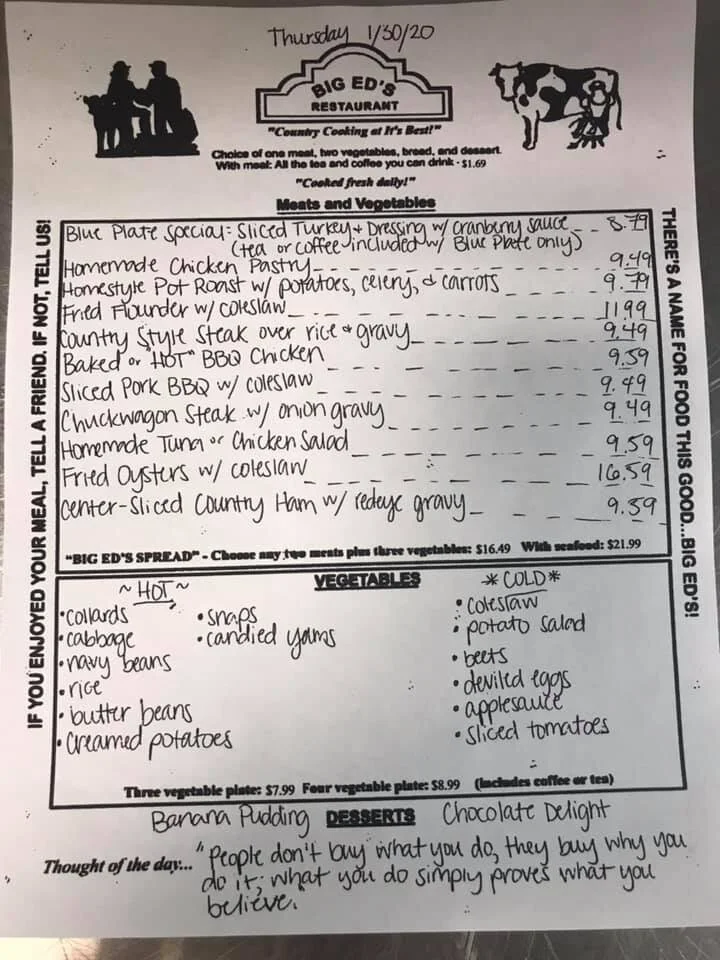 Thursday 1/30/20
BIG ED'S
RESTAURANT
"Country Cooking at It's Best!"
Choice of one meat, two vegetables, bread, and dessert.
With meal: All the tea and coffee you can drink - $1.69
"Cooked fresh daily!"
Meats and Vegetables
IF YOU ENJOYED YOUR MEAL, TELL A FRIEND. IF NOT, TELL US!
THERE'S A NAME FOR FOOD THIS GOOD...BIG ED'S!
Blue Plate Special: Sliced Turkey + Dressing w/ cranberry sauce 8.79
(tea or coffee included w/ Blue Plate only)
Homemade Chicken Pastry 9.49
Homestyle Pot Roast w/ potatoes, celery, & carrots 9.79
Fried Flounder w/ coleslaw 1199
Country Style Steak over rice + gravy 9.49
Baked or "HOT" BBQ Chicken 9.59
Sliced Pork BBQ w/ coleslaw 9.49
Chuckwagon Steak w/ onion gravy 9.49
Homemade Tuna or Chicken Salad 9.59
Fried Oysters w/ coleslaw 16.59
Center-Sliced Country Ham w/ redeye gravy 9.59
"BIG ED'S SPREAD" - Choose any two meats plus three vegetables: $16.49 With seafood: $21.99
VEGETABLES
~ HOT ~
• collards
• cabbage
• navy beans
• rice
• butter beans
• creamed potatoes
• snaps
• candied yams
* COLD *
• coleslaw
• potato salad
• beets
• deviled eggs
• applesauce
• sliced tomatoes
Three vegetable plate: $7.99 Four vegetable plate: $8.99 (includes coffee or tea)
Banana Pudding DESSERTS Chocolate Delight
Thought of the day... "People don't buy what you do, they buy why you
do it; what you do simply proves what you
believe.